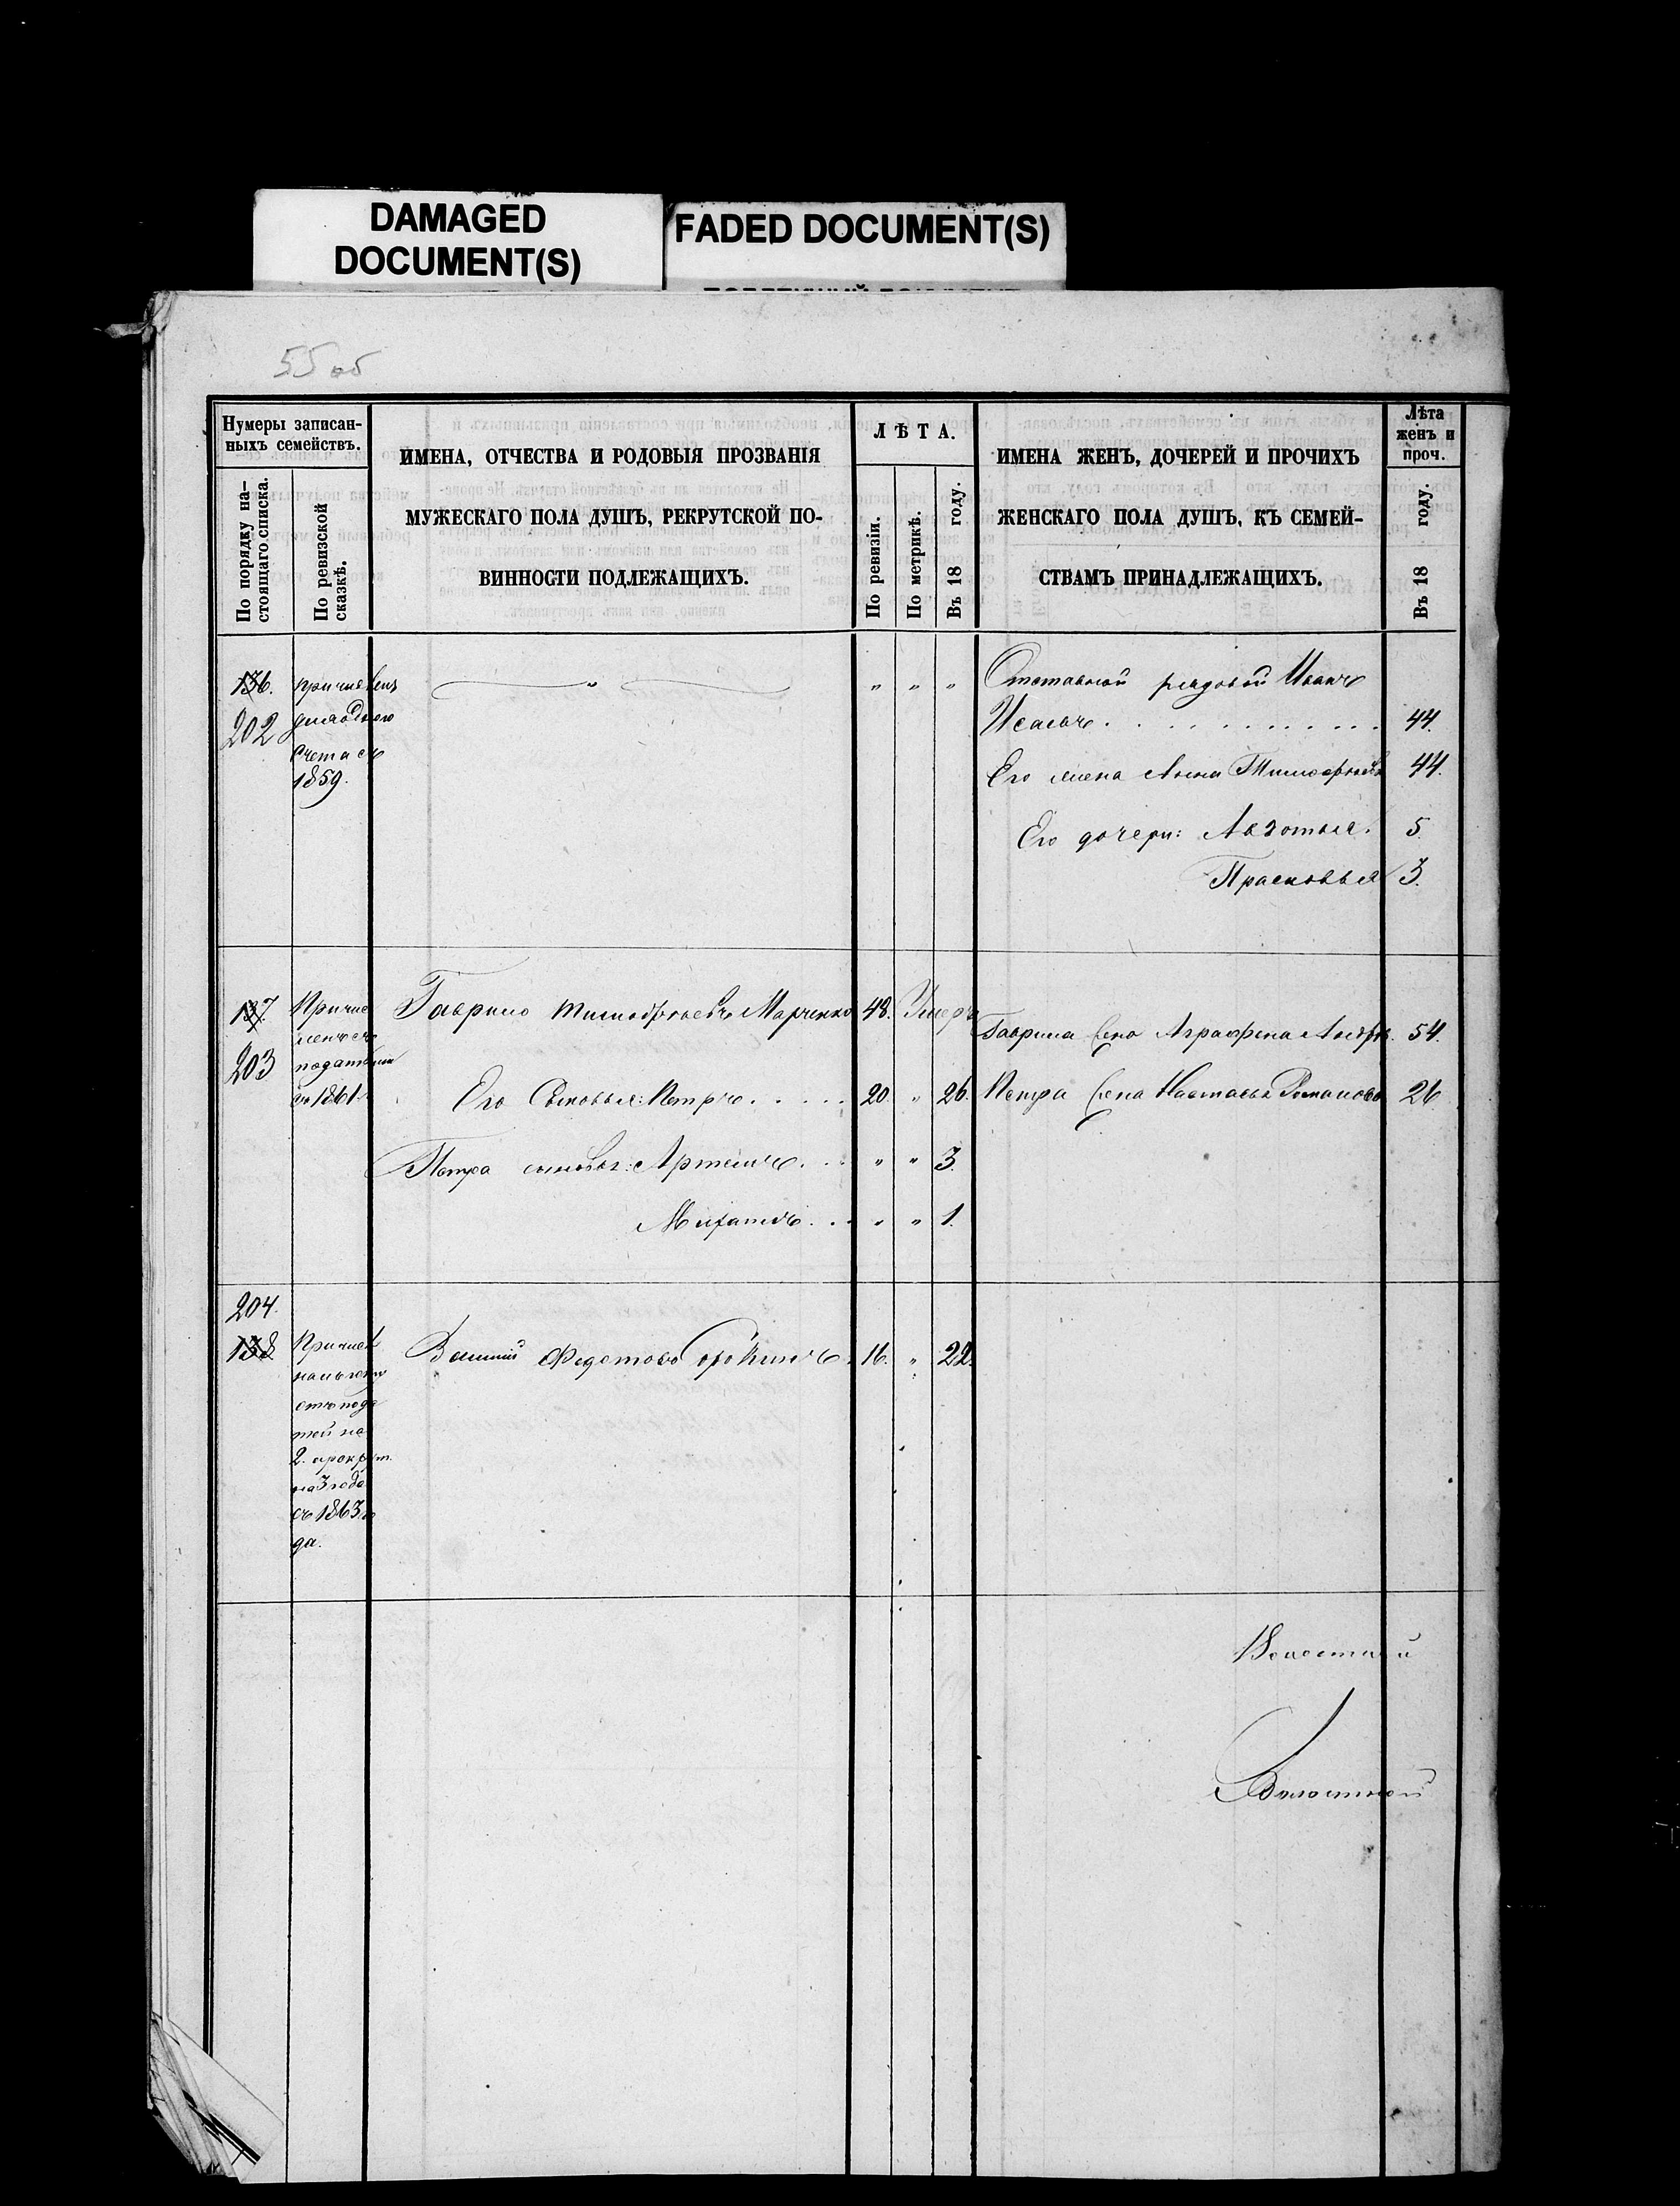 DAMAGED
DOCUMENT(S)
FADED DOCUMENT(S)
55 об
Нумеры записан-
ныхъ семействъ.
По порядку на-
стоящаго списка.
По ревизской
сказкѣ.
ИМЕНА, ОТЧЕСТВА И РОДОВЫЯ ПРОЗВАНІЯ
МУЖЕСКАГО ПОЛА ДУШЪ, РЕКРУТСКОЙ ПО-
ВИННОСТИ ПОДЛЕЖАЩИХЪ.
ЛѢТА.
По ревизіи.
По метрикѣ.
Въ 18 году.
ИМЕНА ЖЕНЪ, ДОЧЕРЕЙ И ПРОЧИХЪ
ЖЕНСКАГО ПОЛА ДУШЪ, КЪ СЕМЕЙ-
СТВАМЪ ПРИНАДЛЕЖАЩИХЪ.
Лѣта
женъ и
проч.
Въ 18 году.
136.
202
причисленъ
для одного
счета съ
1859.
" " " "
Отставной рядовой Иванъ
Исаевъ . . . . . . . . . . . . 44.
Его жена Анна Тимофѣева 44.
Его дочери: Авдотья. 5.
Прасковья 3.
137.
203
Причис
ленъ съ
податьми
съ 1861
Гаврило Тимофѣевъ Марченко 48. Умеръ
Гаврила жена Аграфена Андрѣ. 54.
Его Сыновья: Петръ . . . . . 20. " 26.
Петра жена Настасья Романова 26
Петра сыновья: Артемъ . . . " " 3.
Михаилъ . . . " " 1.
204.
138.
Причисл
на льготу
отъ пода
тей на
2. а рекрут.
на 3 года
съ 1863 го
да.
Василій Федотовъ 16. " 22.
Волостной
Волостной